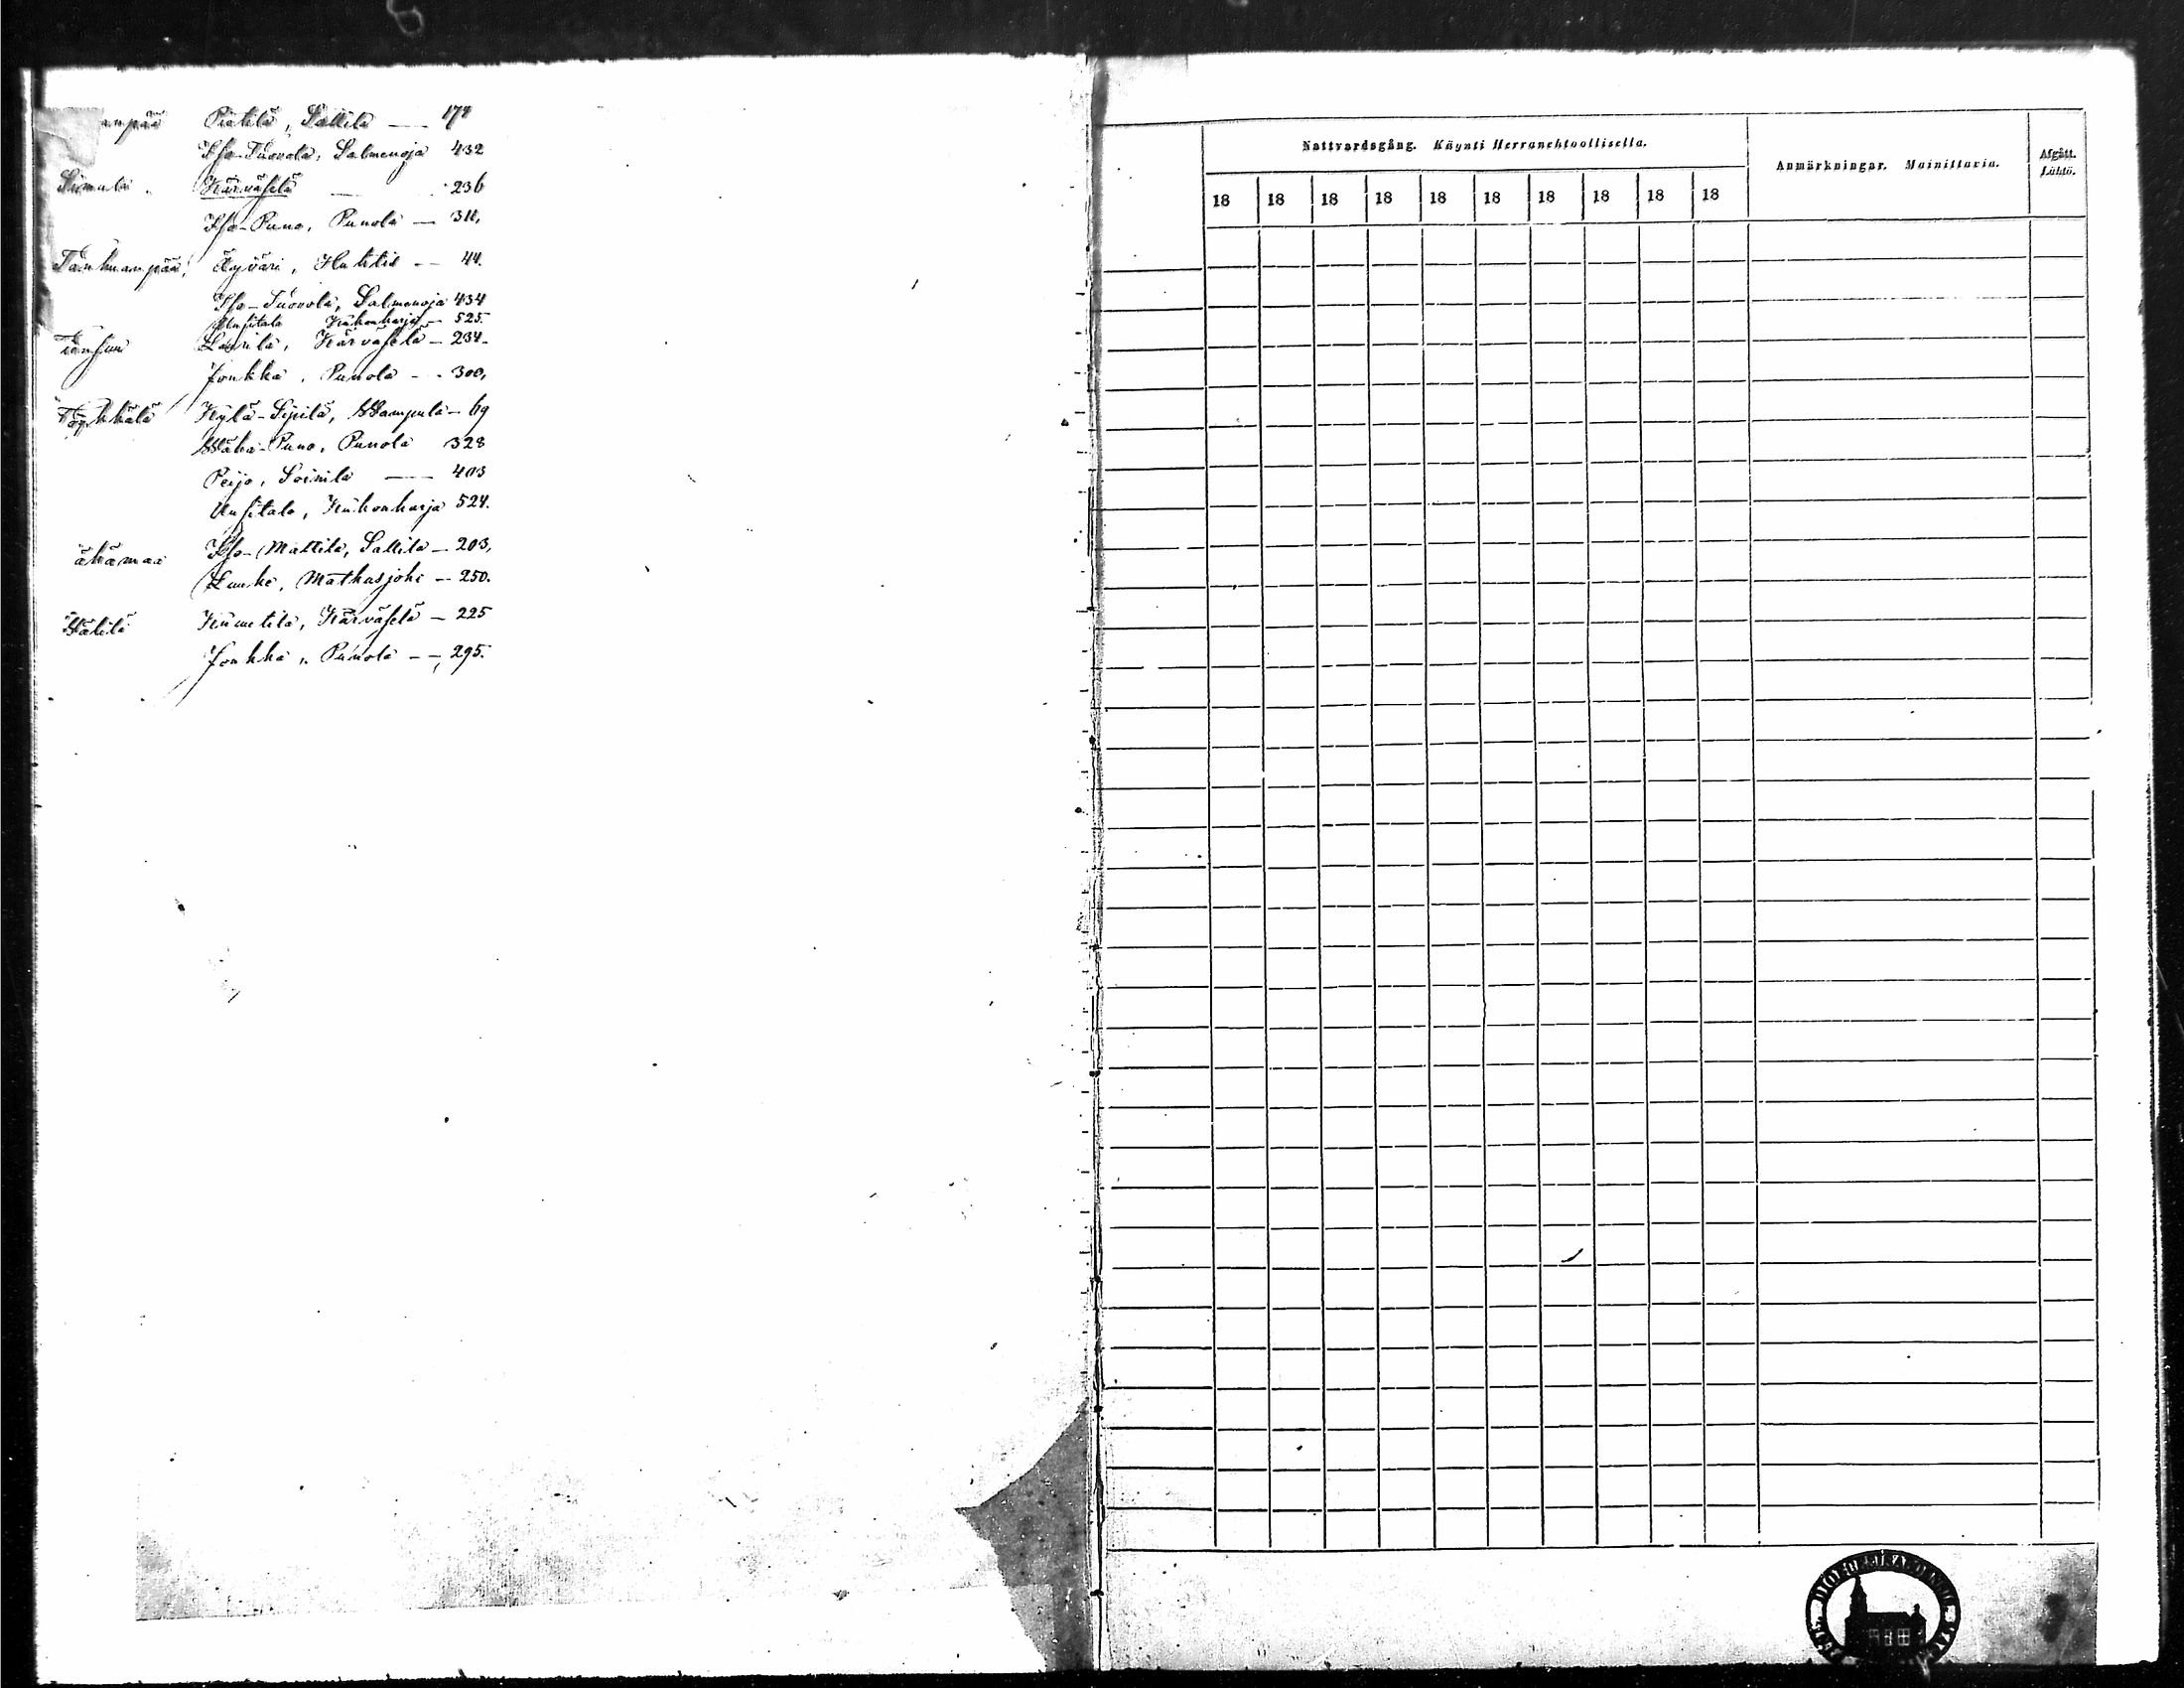 anpää Pietilä, Sallila — 174
Iso-Tuovola, Salmenoja 432
Simula Kärväselä — 236
Iso-Puno, Punola — 311,
Tankuanpää, Äyväri, Huhtis — 44.
Iso-Tuovola, Salmenoja 434
Uusitalo Kukonharja — 525.
Laurila, Kärväselä — 234.
Jonkka, Punola - - 300,
Töykkälä Kylä-Sipilä, Wampula — 69
Wähä-Puno, Punola 328
Peijo, Soinila — 403
Uusitalo, Kukonharja 524.
ähämaa Iso-Mattila, Sallila — 203,
Mathusjoki — 250.
Kärväselä — 225
Jonkka, Punola — 295.
Nattvardsgång. Käynti Herranehtoollisella.
Anmärkningar. Mainittavia.
Afgått. Lähtö.
18 18 18 18 18 18 18 18 18 18